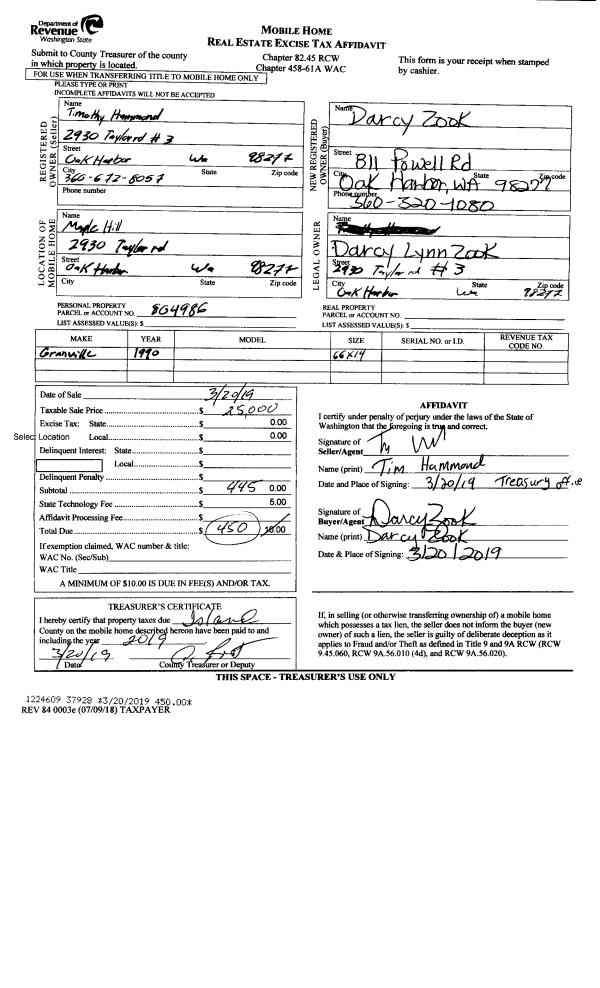 Department of
Revenue
Washington State
MOBILE HOME
REAL ESTATE EXCISE TAX AFFIDAVIT
Submit to County Treasurer of the county
in which property is located.
Chapter 82.45 RCW
Chapter 458-61A WAC
This form is your receipt when stamped
by cashier.
FOR USE WHEN TRANSFERRING TITLE TO MOBILE HOME ONLY
PLEASE TYPE OR PRINT
INCOMPLETE AFFIDAVITS WILL NOT BE ACCEPTED
REGISTERED OWNER (Seller)
Name
Timothy Hammond
2930 Taylor rd # 3
Street
Oak Harbor Wa 98277
City State Zip code
360-672-8057
Phone number
NEW REGISTERED OWNER (Buyer)
Name
Darcy Zook
Street
811 Powell Rd
City State Zip code
Oak Harbor, WA 98277
Phone number
360-320-1080
LOCATION OF MOBILE HOME
Name
Maple Hill
2930 Taylor rd
Street
Oak Harbor Wa 98277
City State Zip code
LEGAL OWNER
Name
Darcy Lynn Zook
Street
2930 Taylor rd # 3
City State Zip code
Oak Harbor Wa 98277
PERSONAL PROPERTY
PARCEL or ACCOUNT NO. 8G4986
LIST ASSESSED VALUE(S): $
REAL PROPERTY
PARCEL or ACCOUNT NO.
LIST ASSESSED VALUE(S): $
MAKE YEAR MODEL SIZE SERIAL NO. or I.D. REVENUE TAX CODE NO.
Granville 1990 66x14
Date of Sale 3/20/19
Taxable Sale Price $ 25,000
Excise Tax: State $ 0.00
Select Location Local $ 0.00
Delinquent Interest: State $
Local $
Delinquent Penalty $
Subtotal $ 445 0.00
State Technology Fee $ 5.00
Affidavit Processing Fee $
Total Due $ 450 10.00
If exemption claimed, WAC number & title:
WAC No. (Sec/Sub)
WAC Title
A MINIMUM OF $10.00 IS DUE IN FEE(S) AND/OR TAX.
AFFIDAVIT
I certify under penalty of perjury under the laws of the State of
Washington that the foregoing is true and correct.
Signature of
Seller/Agent
Name (print) Tim Hammond
Date and Place of Signing: 3/20/19 Treasury office
Signature of
Buyer/Agent Darcy Zook
Name (print) Darcy Zook
Date & Place of Signing: 3/20/2019
TREASURER'S CERTIFICATE
I hereby certify that property taxes due Island
County on the mobile home described hereon have been paid to and
including the year 2019
3/20/19
Date County Treasurer or Deputy
If, in selling (or otherwise transferring ownership of) a mobile home
which possesses a tax lien, the seller does not inform the buyer (new
owner) of such a lien, the seller is guilty of deliberate deception as it
applies to Fraud and/or Theft as defined in Title 9 and 9A RCW (RCW
9.45.060, RCW 9A.56.010 (4d), and RCW 9A.56.020).
THIS SPACE - TREASURER'S USE ONLY
1224609 37928 *3/20/2019 450.00*
REV 84 0003e (07/09/18) TAXPAYER